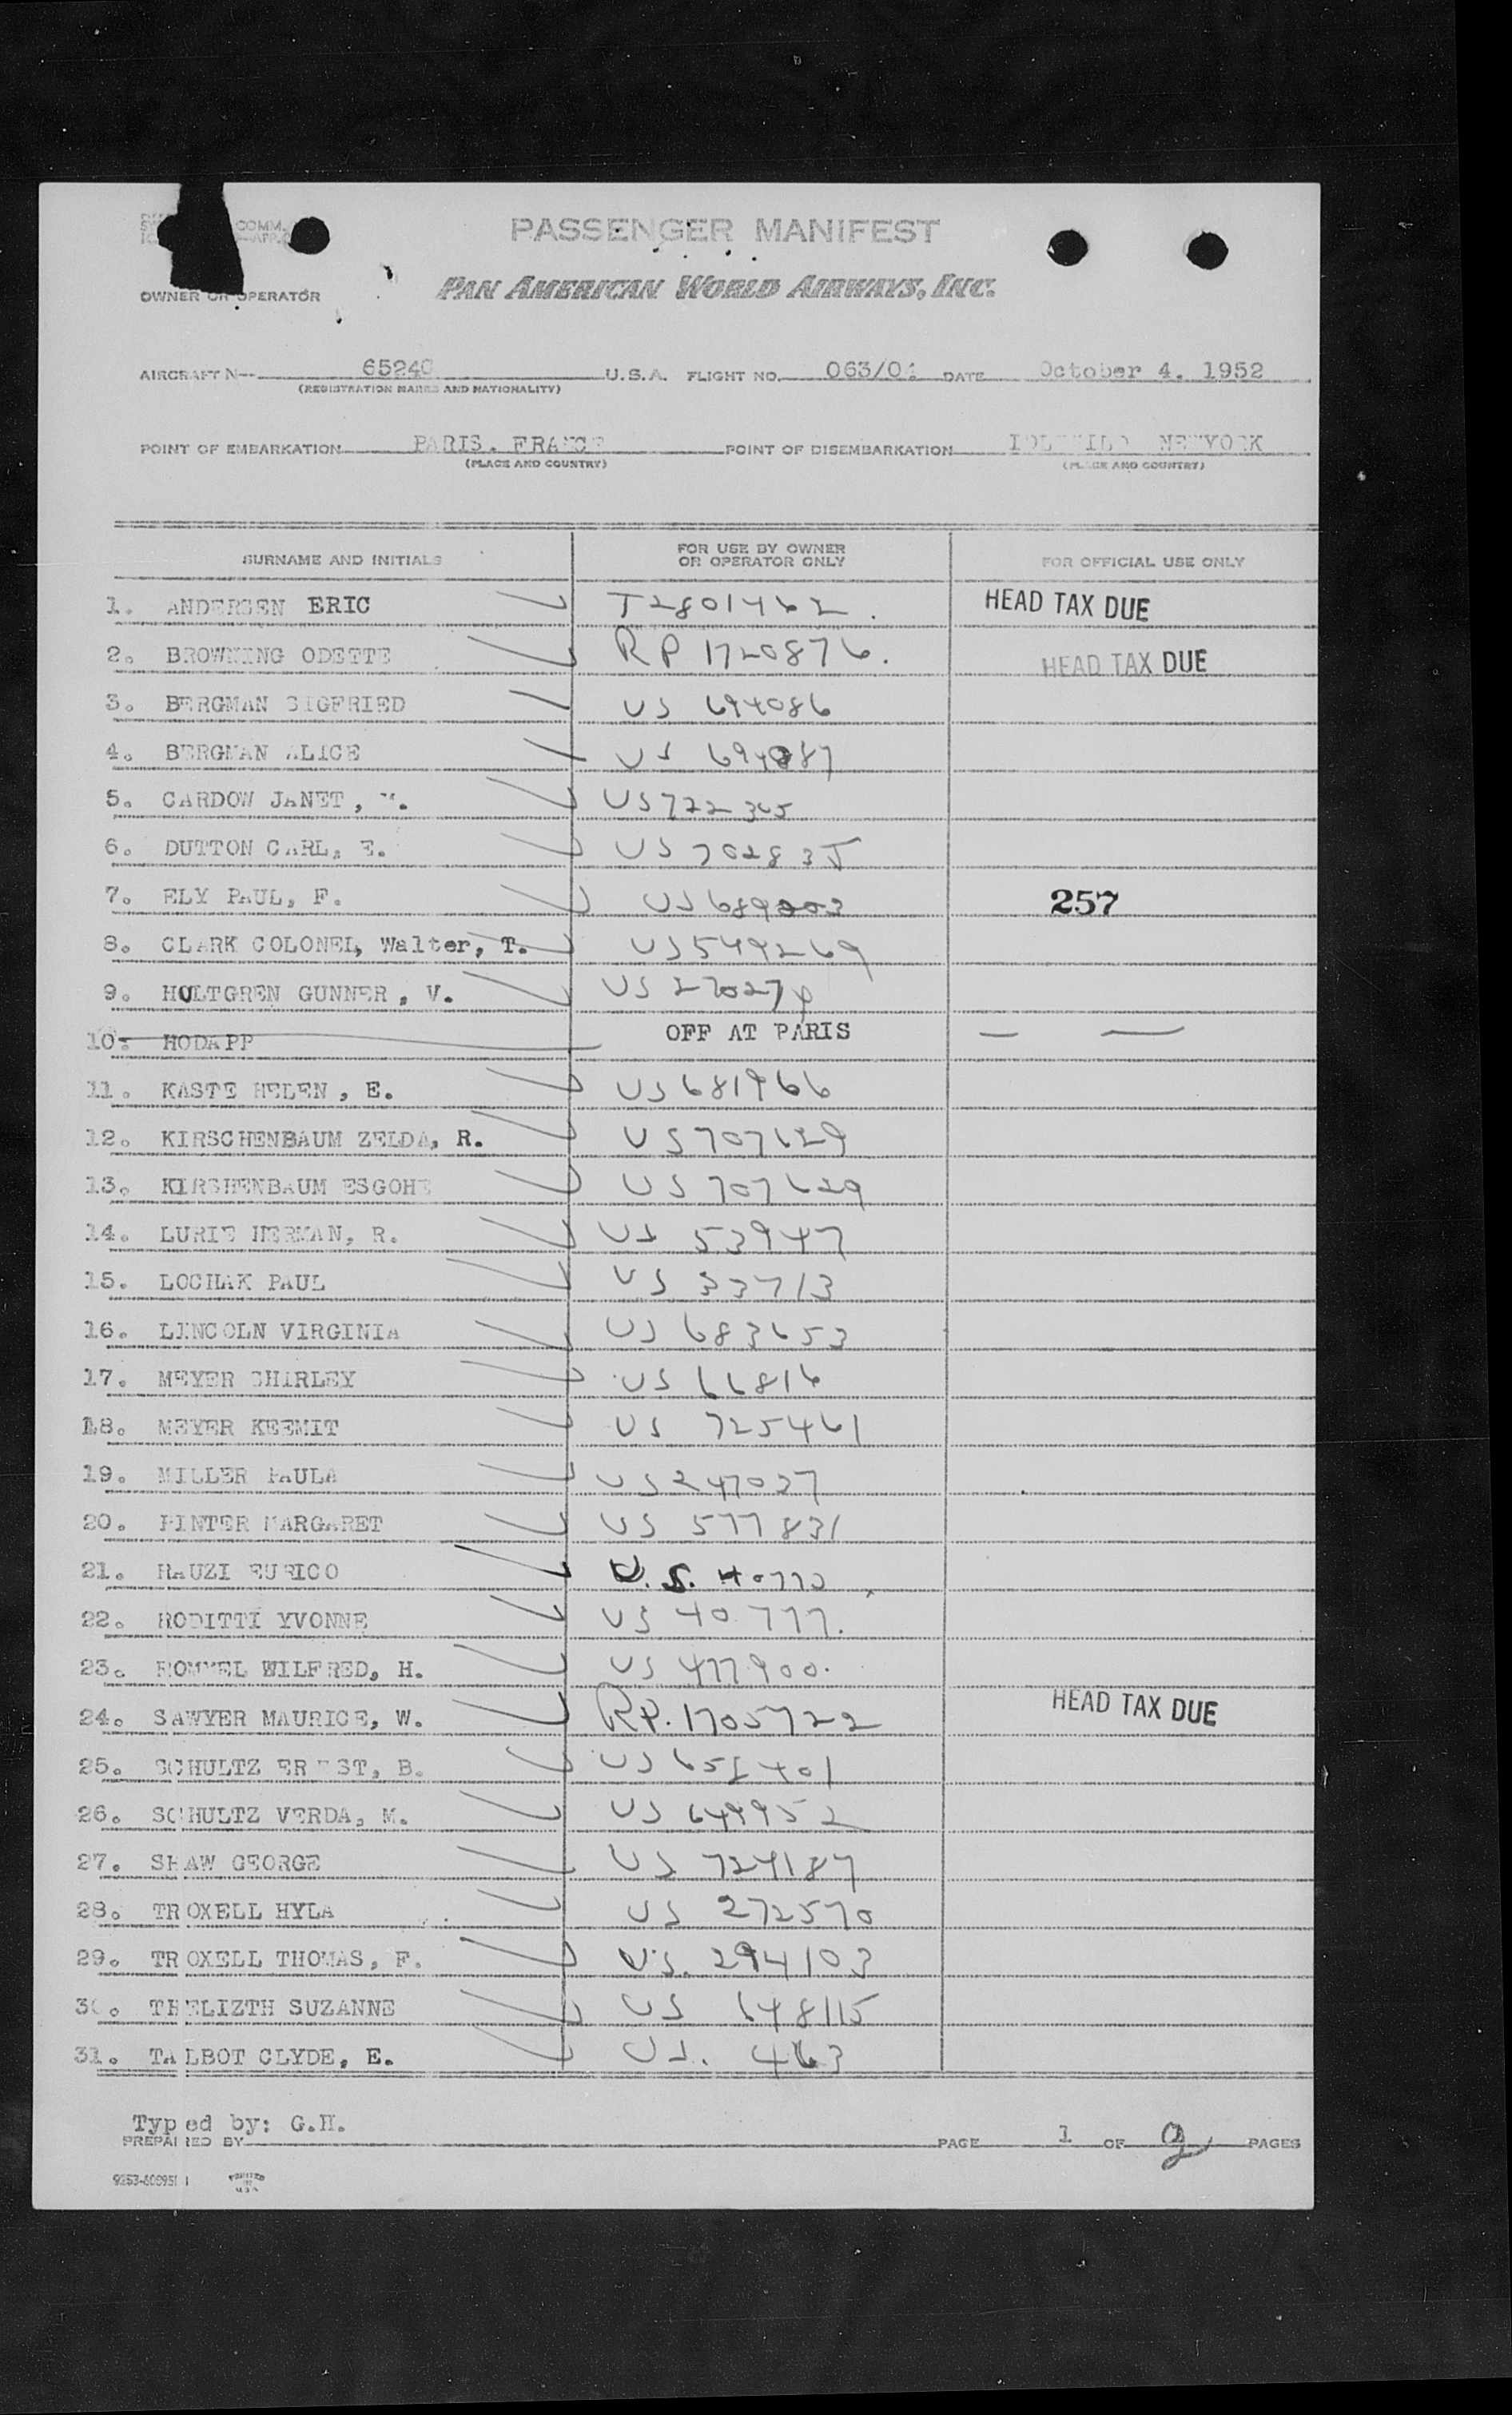 COMM.
PASSENGER MANIFEST
OWNER OR OPERATOR PAN AMERICAN WORLD AIRWAYS, INC.
AIRCRAFT N-- 65240 U.S.A. FLIGHT NO. 063/0 DATE October 4. 1952
(REGISTRATION MARKS AND NATIONALITY)
POINT OF EMBARKATION PARIS. FRANCE POINT OF DISEMBARKATION IDLEWILD NEWYORK
(PLACE AND COUNTRY) (PLACE AND COUNTRY)
SURNAME AND INITIALS FOR USE BY OWNER OR OPERATOR ONLY FOR OFFICIAL USE ONLY
1. ANDERSEN ERIC T2801462. HEAD TAX DUE
2. BROWNING ODETTE RP 1720876. HEAD TAX DUE
3. BERGMAN SIGFRIED US 694086
4. BERGMAN ALICE US 694087
5. CARDOW JANET, US 722305
6. DUTTON CARL, E. US 702835
7. ELY PAUL, F. US 689003 257
8. CLARK COLONEL, Walter, T. US 549269
9. HOLTGREN GUNNER, V. US
10. HODAPP OFF AT PARIS — —
11. KASTE HELEN, E. US 681966
12. KIRSCHENBAUM ZELDA, R. US 707629
13. KIRSHENBAUM ESGOHE US 707629
14. LURIE HERMAN, R. US 53947
15. LOCHAK PAUL US 33713
16. LINCOLN VIRGINIA US 683653
17. MEYER SHIRLEY US 66816
18. MEYER KEEMIT US 725461
19. MILLER PAULA US 247027
20. PINTER MARGARET US 577831
21. RAUZI EURICO U.S. 40770
22. RODITTI YVONNE US 40777.
23. ROMMEL WILFRED, H. US 477900.
24. SAWYER MAURICE, W. RP. 1705722 HEAD TAX DUE
25. SCHULTZ ERNEST, B. US
26. SCHULTZ VERDA, M. US 649952
27. SHAW GEORGE US 724187
28. TROXELL HYLA US 272570
29. TROXELL THOMAS, F. US. 294103
30. THELIZTH SUZANNE US 648115
31. TALBOT CLYDE, E. US. 463
Typed by: G.H.
PREPARED BY PAGE 1 OF 2 PAGES
PRINTED IN U.S.A.